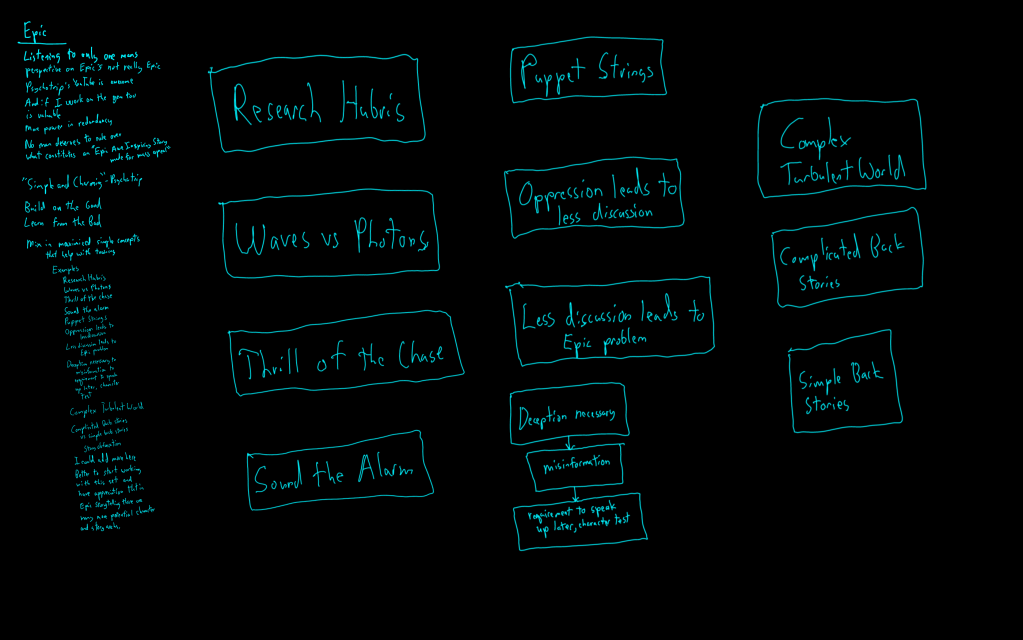 Epic
Listening to only one mans
perspective on Epic's not really Epic
Psychotrip's YouTube is awesome
And if I work on the gem too
is valuable
More power in redundancy
No man deserves to rule over
what constitutes an "Epic Awe Inspiring Story
made for mass appeal"
"Simple and Charming" - Psychotrip
Build on the Good
Learn from the Bad
Mix in maximised simple concepts
that help with teaching
Examples
Research Hubris
Waves vs Photons
Thrill of the chase
Sound the alarm
Puppet Strings
Oppression leads to
less discussion
Less discussion leads to
Epic problem
Deception necessary to
misinformation to
requirement to speak
up later, character
test
Complex Turbulent World
Complicated Back stories
vs simple back stories
Story obfuscation
I could add more here
Better to start working
with this set and
have appreciation that in
Epic storytelling there are
many more potential character
and story arcs.
Research Hubris
Waves vs Photons
Thrill of the Chase
Sound the Alarm
Puppet Strings
Oppression leads to
less discussion
Less discussion leads to
Epic problem
Deception necessary
misinformation
requirement to speak
up later, character test
Complex
Turbulent World
Complicated Back
Stories
Simple Back
Stories